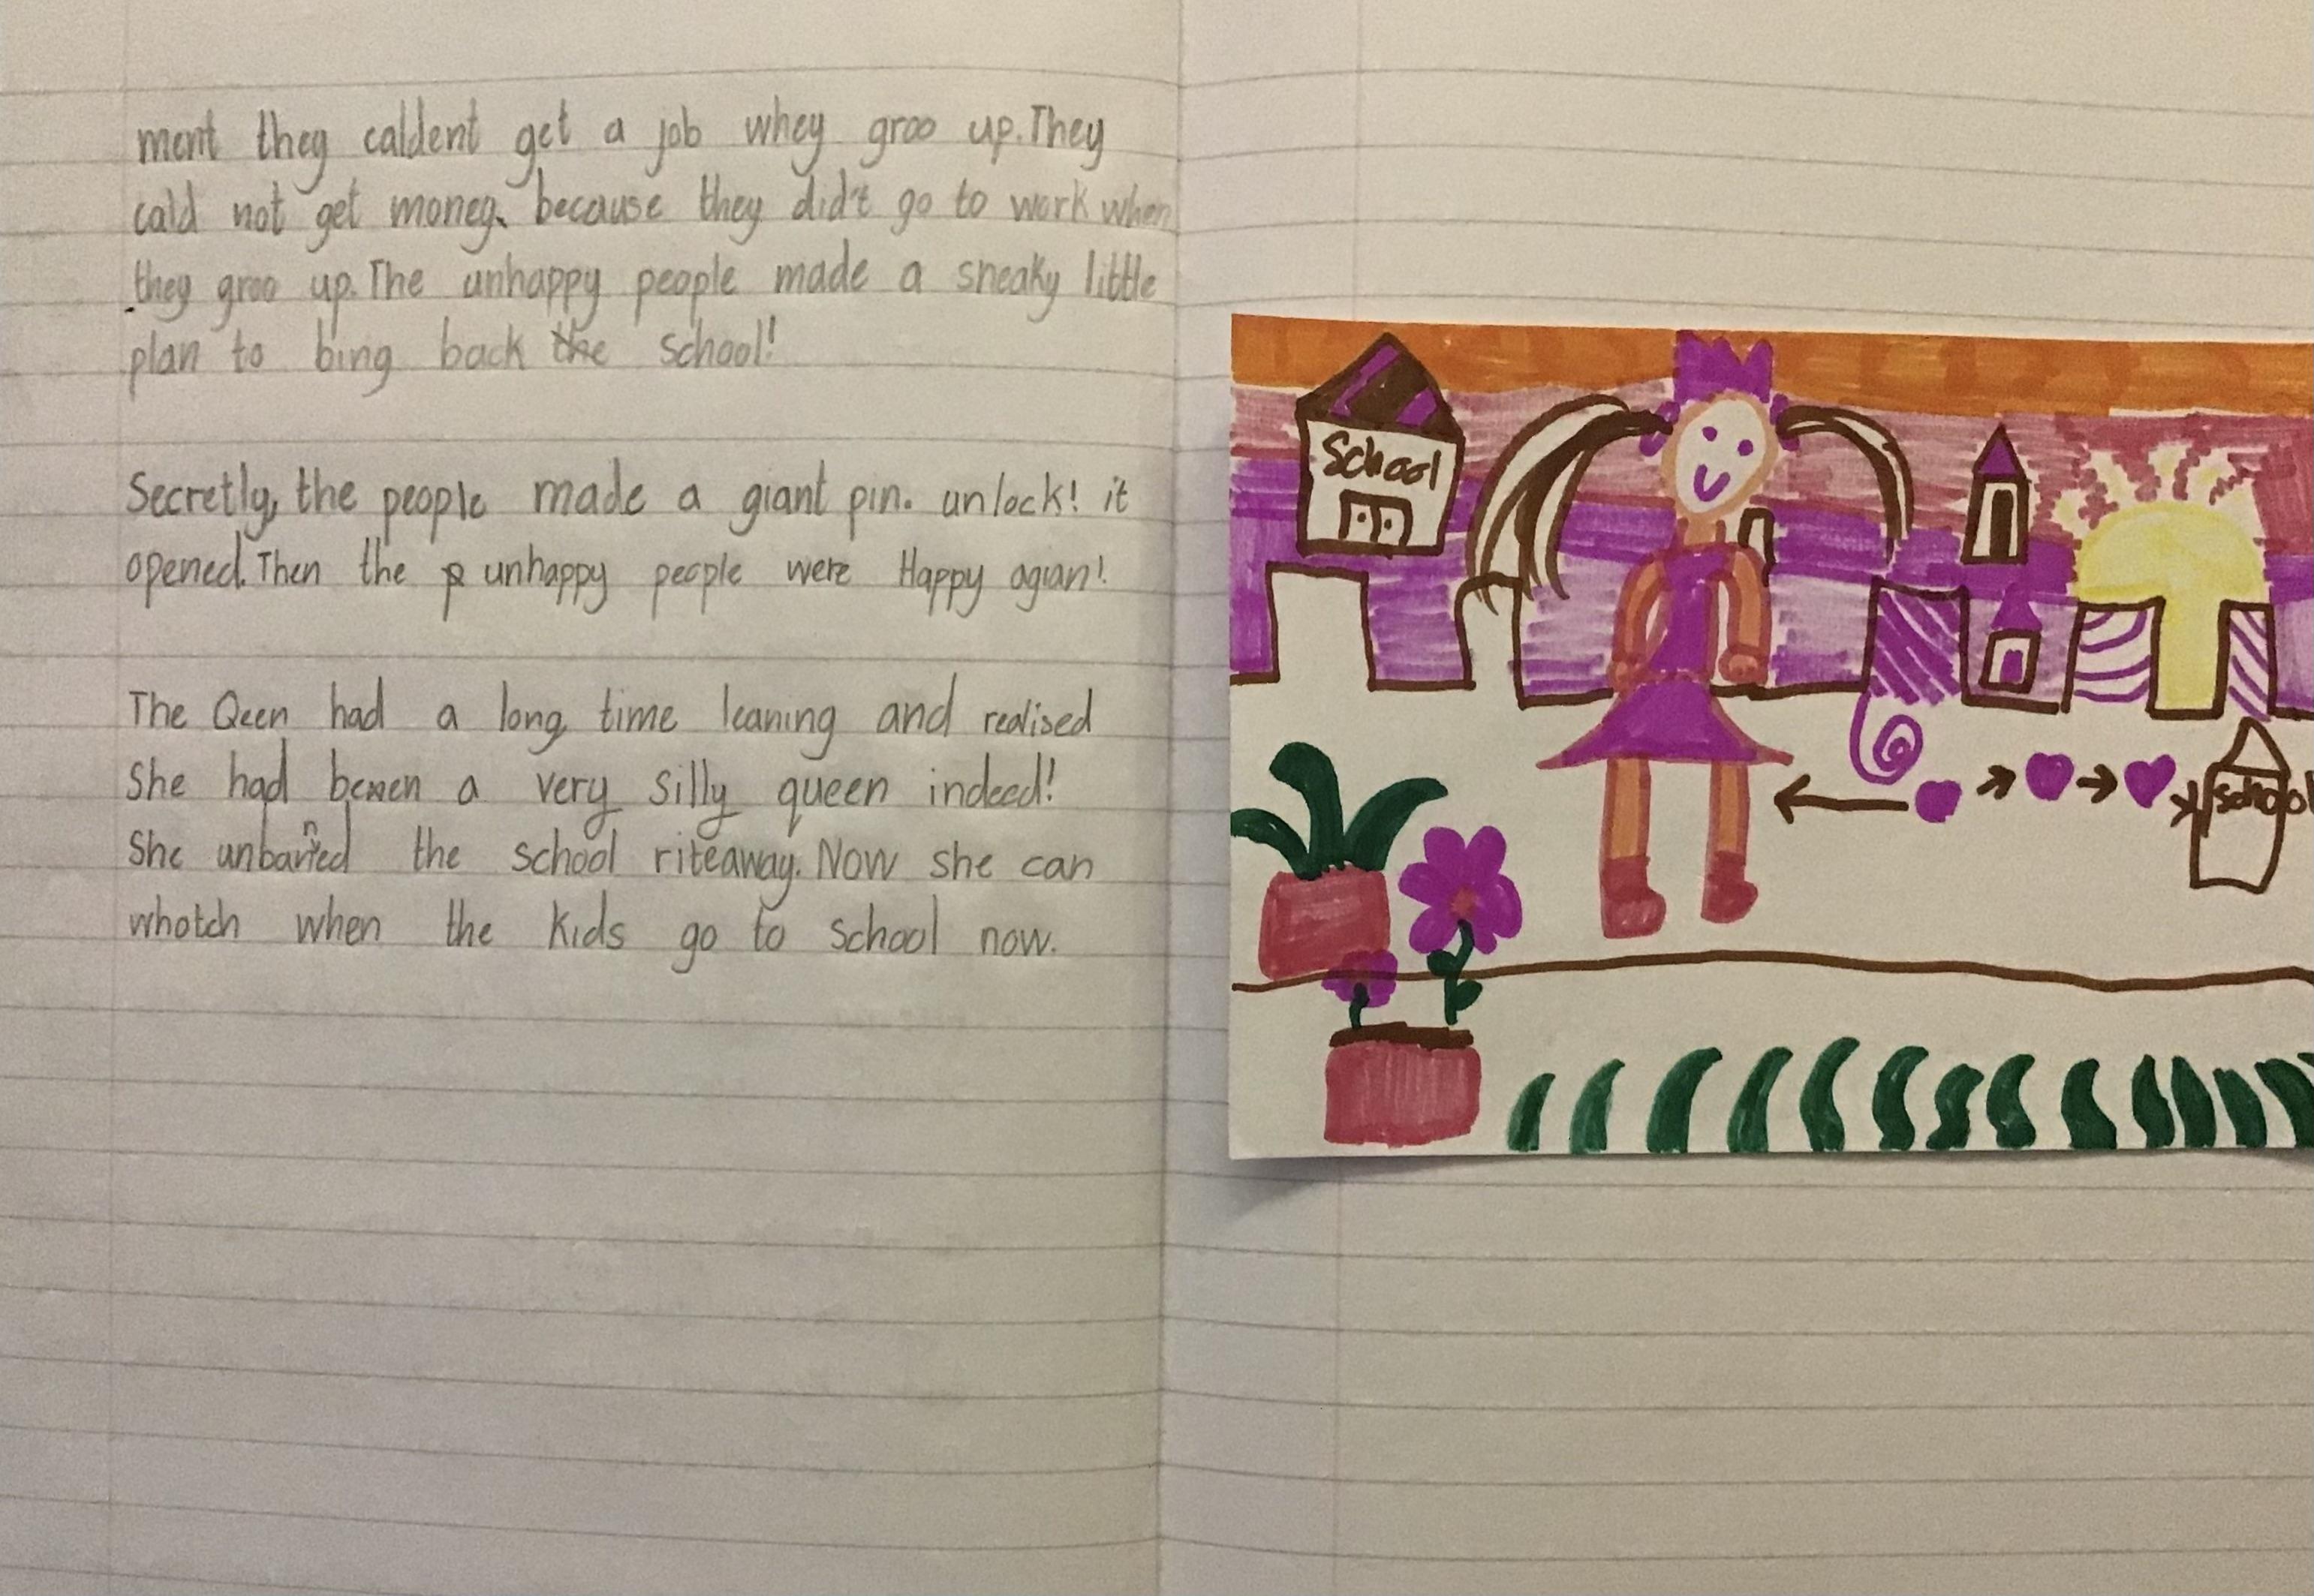 ment they caldent get a job whey groo up. They
cald not get money, because they did't go to work when
they groo up. The unhappy people made a sneaky little
plan to bing back the school!
Secretly, the people made a giant pin. unlock! it
opened. Then the p unhappy people were Happy agian!
The Qeen had a long time leaning and realised
She had been a very silly queen indeed!
She unbanned the school riteaway. Now she can
whotch when the kids go to school now.
School
School